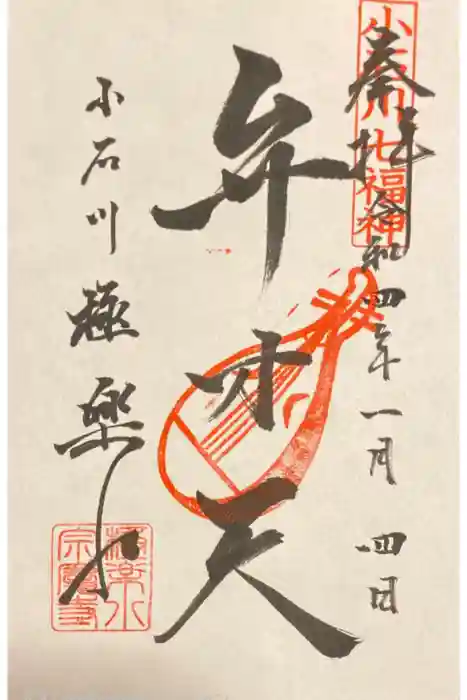 小石川七福神
奉拝 令和四年一月四日
弁才天
小石川 極楽水
極楽水
宗慶寺